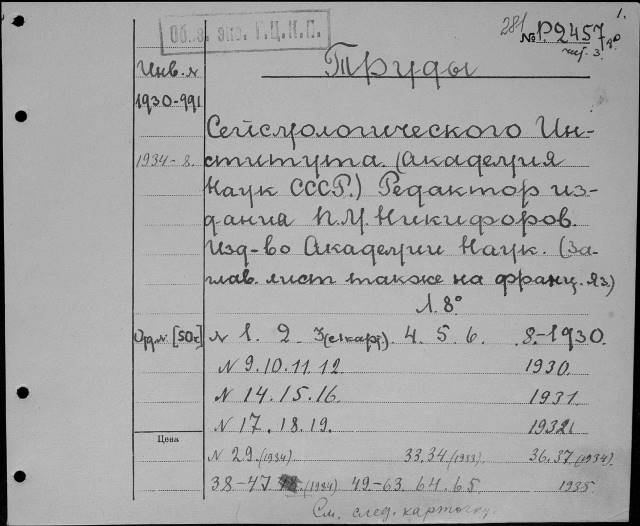 1.
281 № P.2457
Об.з. экз. Г.Ц.К.П.
Инв. №
Труды
1930-991
Сейсмологического Ин-
1934-8.
ститута. (Академия
Наук СССР.) Редактор из-
дания П.М. Никифоров.
Изд-во Академии Наук. (За-
глав. лист также на франц. яз.)
Л. 8°
Орд. № [50к] № 1. 2. 3 (с карт.). 4. 5. 6. 8.-1930.
№ 9.10.11.12. 1930.
№ 14.15.16. 1931.
№ 17.18.19. 1932.
Цена
№ 29.(1934). 33.34 (1933). 36.37 (1934).
38-47. (1934) 49-63. 64. 65. 1935.
См. след. карточку.